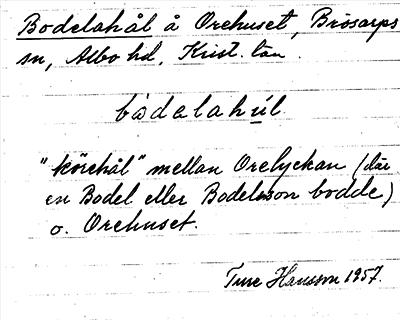 Bodelahål å Orehuset, Brösarps
sn, Albo hd, Krist. län.
bòdelahúl
"körehål" mellan Orelyckan (där
en Bodel eller Bodelsson bodde)
o. Orehuset.
Ture Hansson 1957.